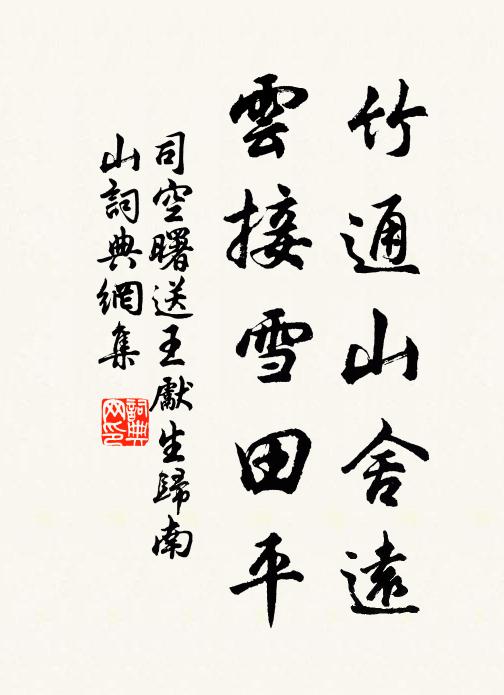 竹通山舍遠
雲接雪田平
司空曙送王獻生歸南
山詞典網集
詞典
网印